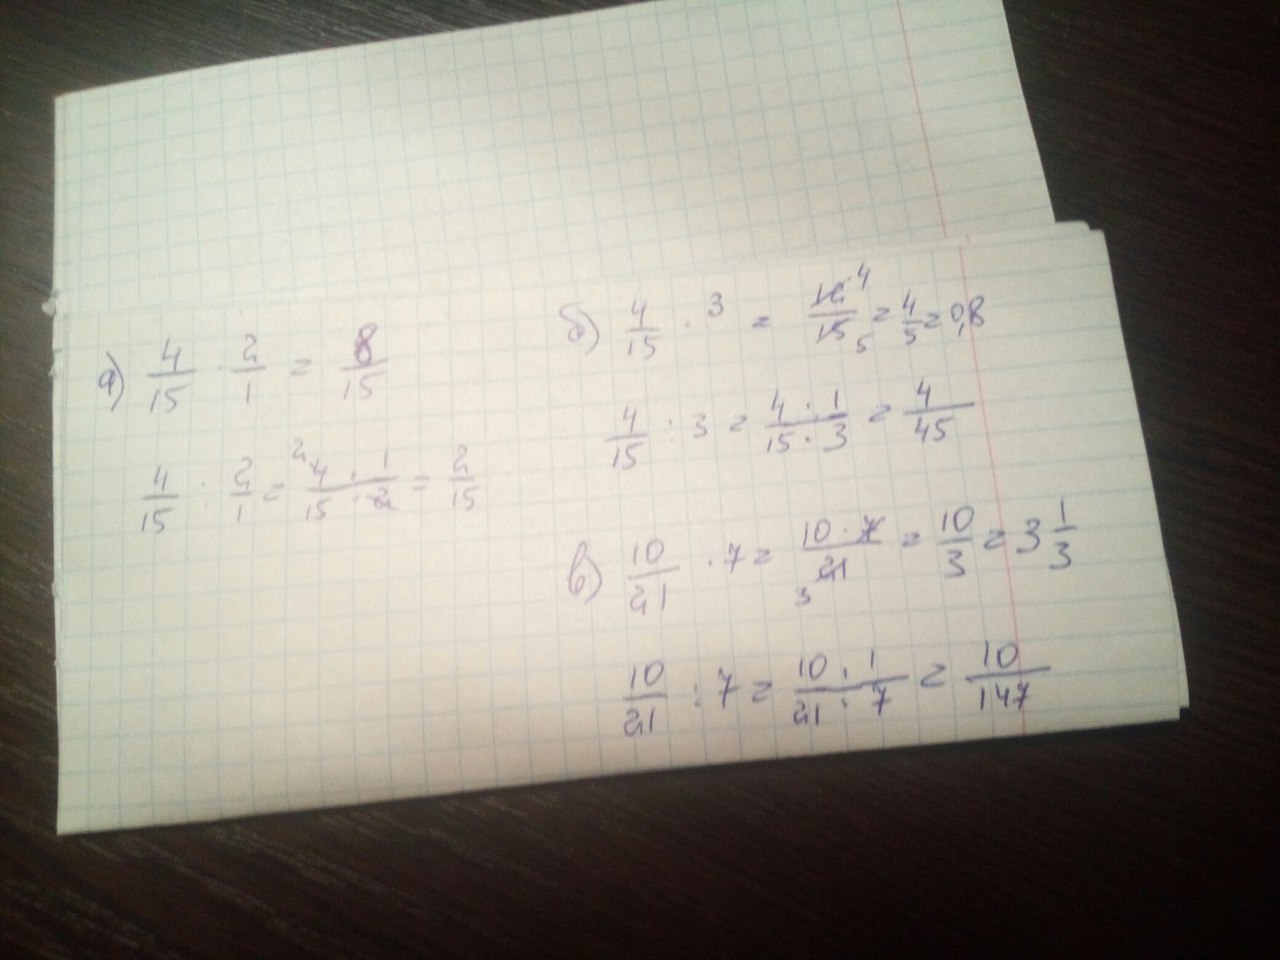 а) 4/15 · 2/1 = 8/15
4/15 : 2/1 = 4/15 · 1/2 = 2/15
б) 4/15 · 3 = 12/15 = 4/5 = 0,8
4/15 : 3 = 4/15 · 1/3 = 4/45
в) 10/21 · 7 = 10·7/21 = 10/3 = 3 1/3
10/21 : 7 = 10/21 · 1/7 = 10/147